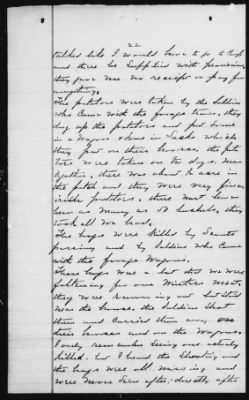 22
talked like I would have to go to Camp
and there be supplied with provisions
they gave me no receipt or pay for
anything.
The potatoes were taken by the soldiers
who came with the forage train, they
dug up the potatoes and put some
in a wagon & some in sacks which
they put on their horses, the pota
toes were taken on two days, near
together. there was about ½ acre in
the patch and they were very fine
irish potatoes. there must have
been as many as 50 bushels, they
took all we had.
The hogs were killed by Scouts
passing and by soldiers who came
with the forage wagons.
These hogs were a lot that we were
fattening for our winters meat,
they were running out
near the house, the soldiers shot
them and carried them away on
their horses and in the wagons.
I only remember seeing one actually
killed. but I heard the shooting and
the hogs were all missing and
were never seen after; directly after